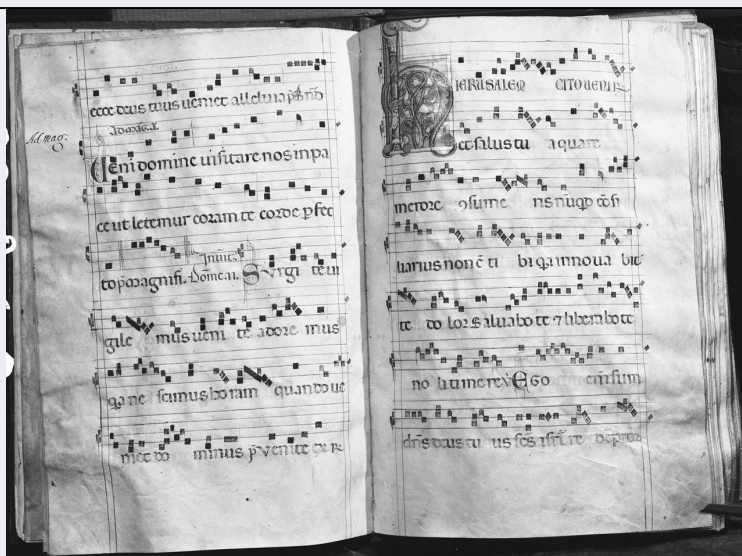 ecce deus tuus ueniet alleluia
Ad mag:
Ueni domine uisitare nos in pa
ce ut letemur coram te corde pfec
to magnifi. Surgi te ui
gile mus ueni te adore mus
qa ne scimus horam quando ue
niet do minus p Uenite
IERUSALEM CITO UENI
et salus tu a quare
merore sume ris nuqd
liarius non e ti bi qa innoua bit
te do lor Saluabo te 7 liberabo te
no li timere V Ego enim sum
dns deus tu us scs isrl re